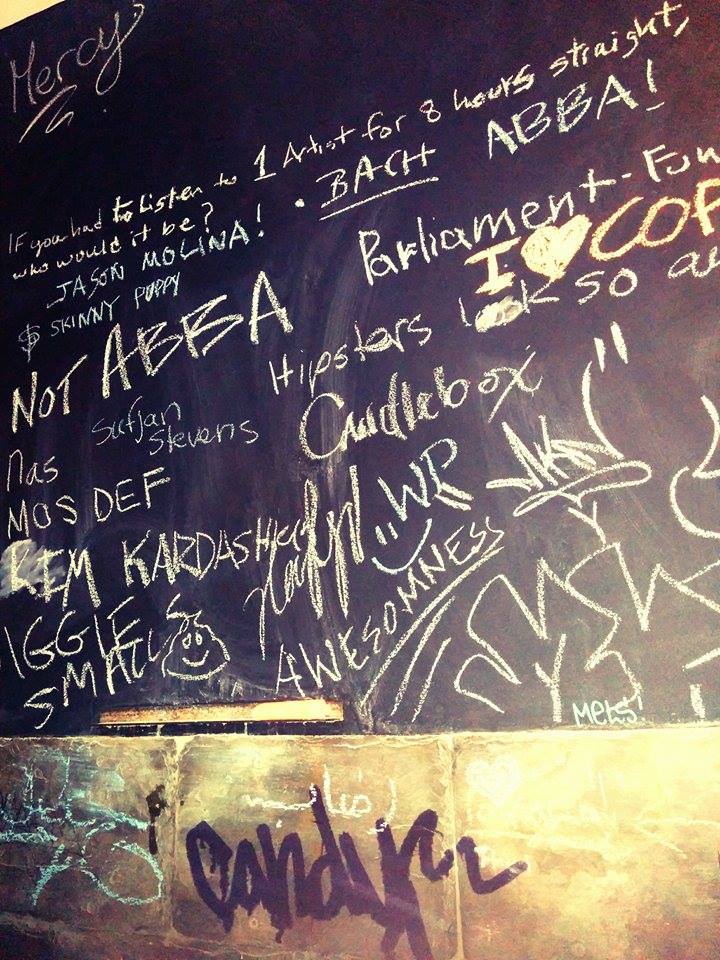 Mercy
If you had to Listen to 1 Artist for 8 hours straight,
who would it be?
• BACH ABBA!
JASON MOLINA!
$ SKINNY PUPPY
Parliament-Fun
I ♥ COF
NOT ABBA
Hipsters look so
Sufjan
Stevens
Candlebox
Nas
MOS DEF
KIM KARDASHIAN
WR
IGGIE
SMALLS
AWESOMNESS
Mets!
Candy